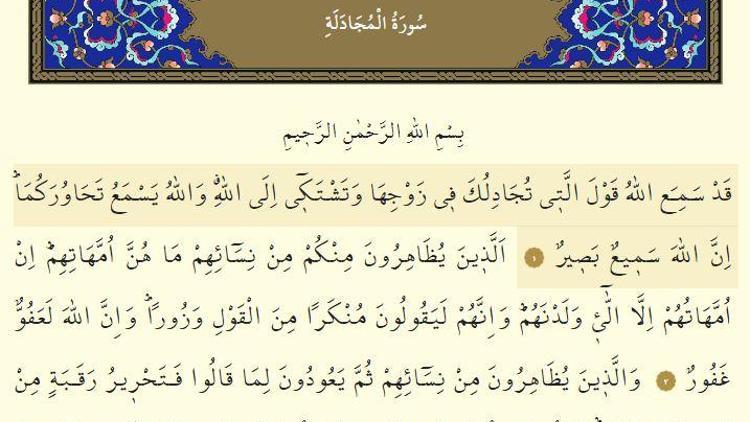 سُورَةُ الْمُجَادَلَةِ
بِسْمِ اللهِ الرَّحْمٰنِ الرَّحٖيمِ
قَدْ سَمِعَ اللهُ قَوْلَ الَّتٖي تُجَادِلُكَ فٖي زَوْجِهَا وَتَشْتَكٖٓي اِلَى اللهِۗ وَاللهُ يَسْمَعُ تَحَاوُرَكُمَاۜ
اِنَّ اللهَ سَمٖيعٌ بَصٖيرٌ ١ اَلَّذٖينَ يُظَاهِرُونَ مِنْكُمْ مِنْ نِسَٓائِهِمْ مَا هُنَّ اُمَّهَاتِهِمْۜ اِنْ
اُمَّهَاتُهُمْ اِلَّا الّٰٓـٖٔي وَلَدْنَهُمْۜ وَاِنَّهُمْ لَيَقُولُونَ مُنْكَرًا مِنَ الْقَوْلِ وَزُورًاۜ وَاِنَّ اللهَ لَعَفُوٌّ
غَفُورٌ ٢ وَالَّذٖينَ يُظَاهِرُونَ مِنْ نِسَٓائِهِمْ ثُمَّ يَعُودُونَ لِمَا قَالُوا فَتَحْرٖيرُ رَقَبَةٍ مِنْ